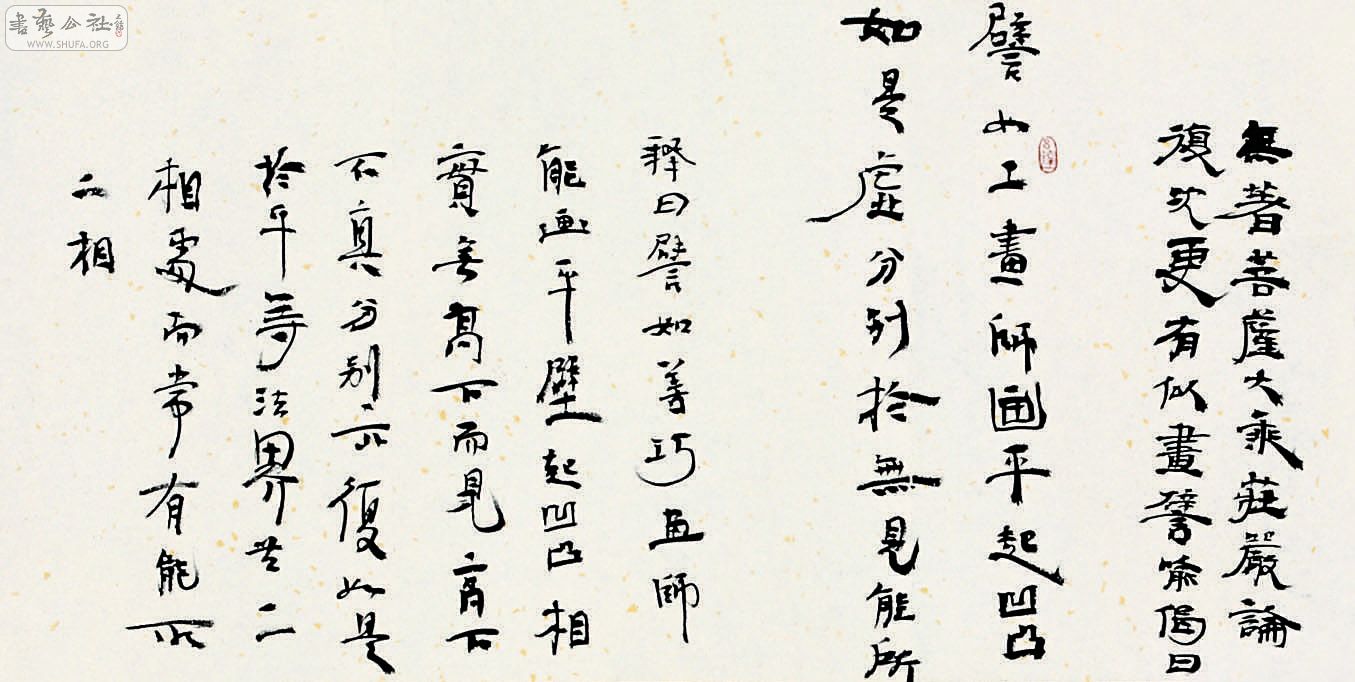 無著菩薩大乘莊嚴論
復次更有似畫譬喻偈曰
譬如工畫師画平起凹凸
如是虛分別於無見能所
釋曰譬如善巧画師
能画平壁起凹凸相
實無高下而見高下
不真分別亦復如是
於平等法界无二
相處而常有能所
二相
書藝公社
WWW.SHUFA.ORG